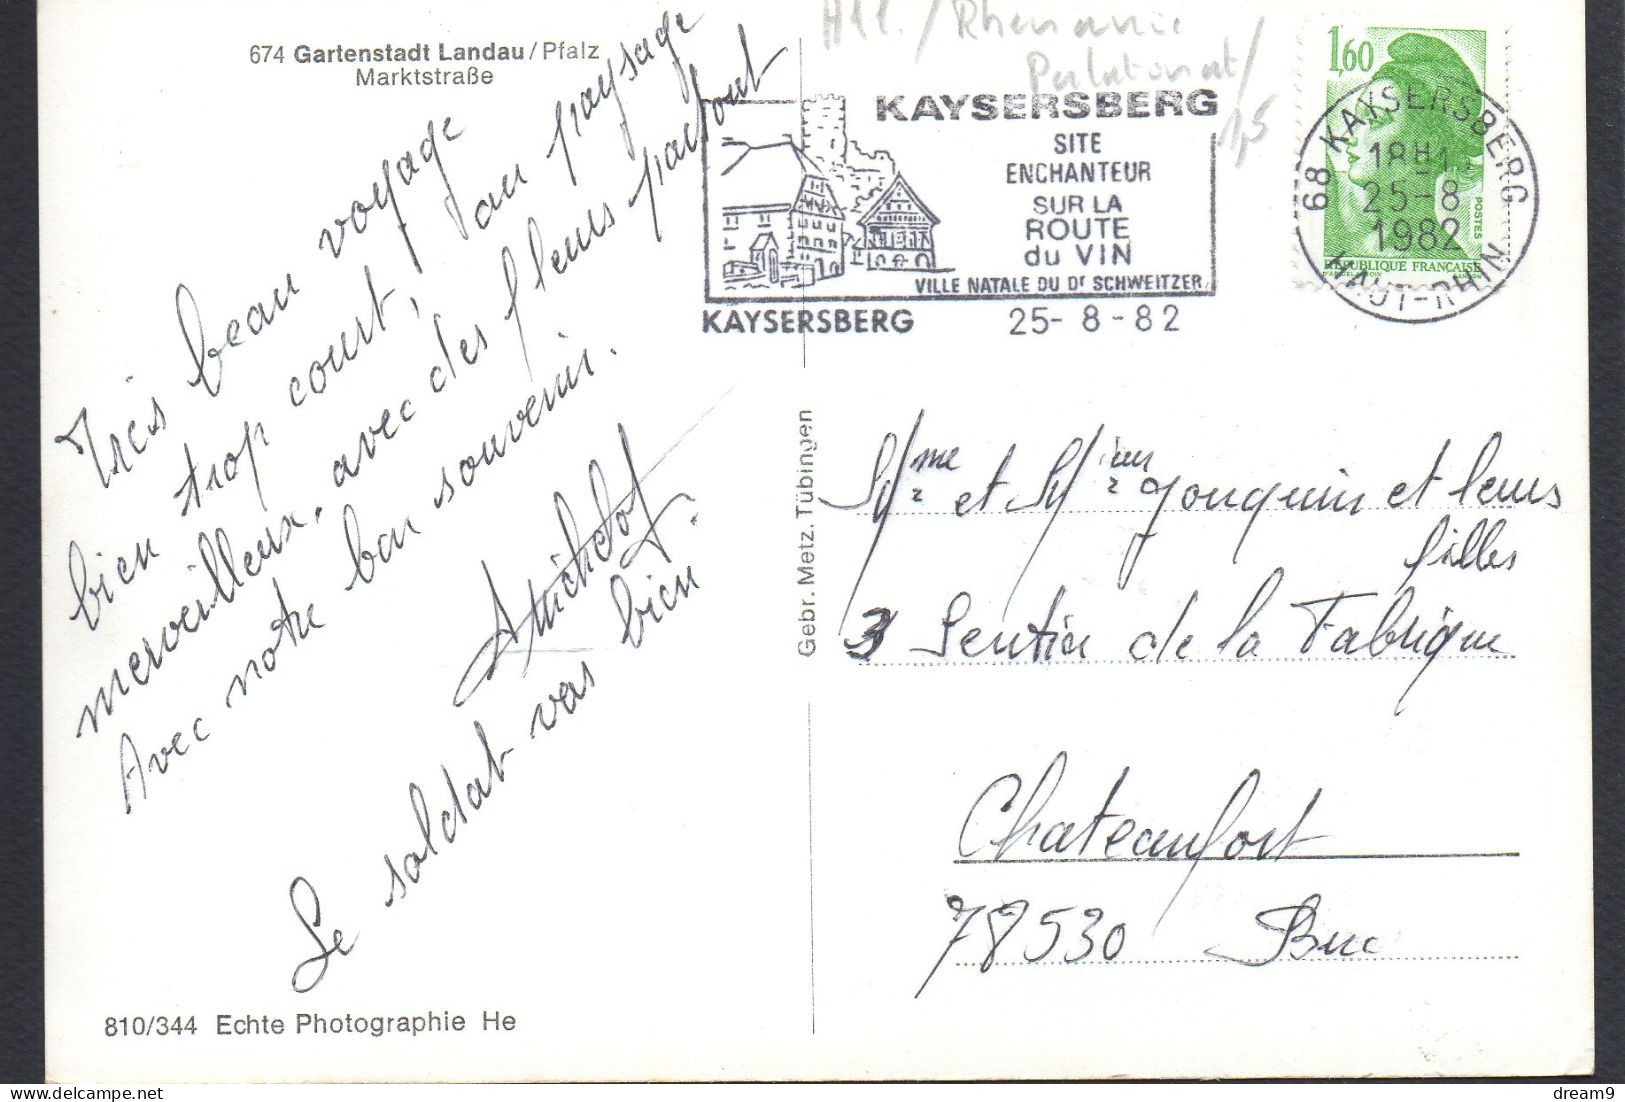 674 Gartenstadt Landau/Pfalz
Marktstraße
Très beau voyage
bien trop court, au paysage
merveilleux, avec des fleurs partout
Avec notre bon souvenir.
Le soldat vas bien.
810/344 Echte Photographie He
Gebr. Metz, Tübingen
All./Rhenanie
Palatinat/
1,5
KAYSERSBERG
SITE
ENCHANTEUR
SUR LA
ROUTE
du VIN
VILLE NATALE DU Dr SCHWEITZER
KAYSERSBERG 25-8-82
1,60
POSTES
RÉPUBLIQUE FRANÇAISE
68 KAYSERSBERG
18H
25-8
1982
HAUT-RHIN
Mme et Mr Jouquin et leurs
filles
3 Sentier de la Fabrique
Chateaufort
78530 Buc
dream9